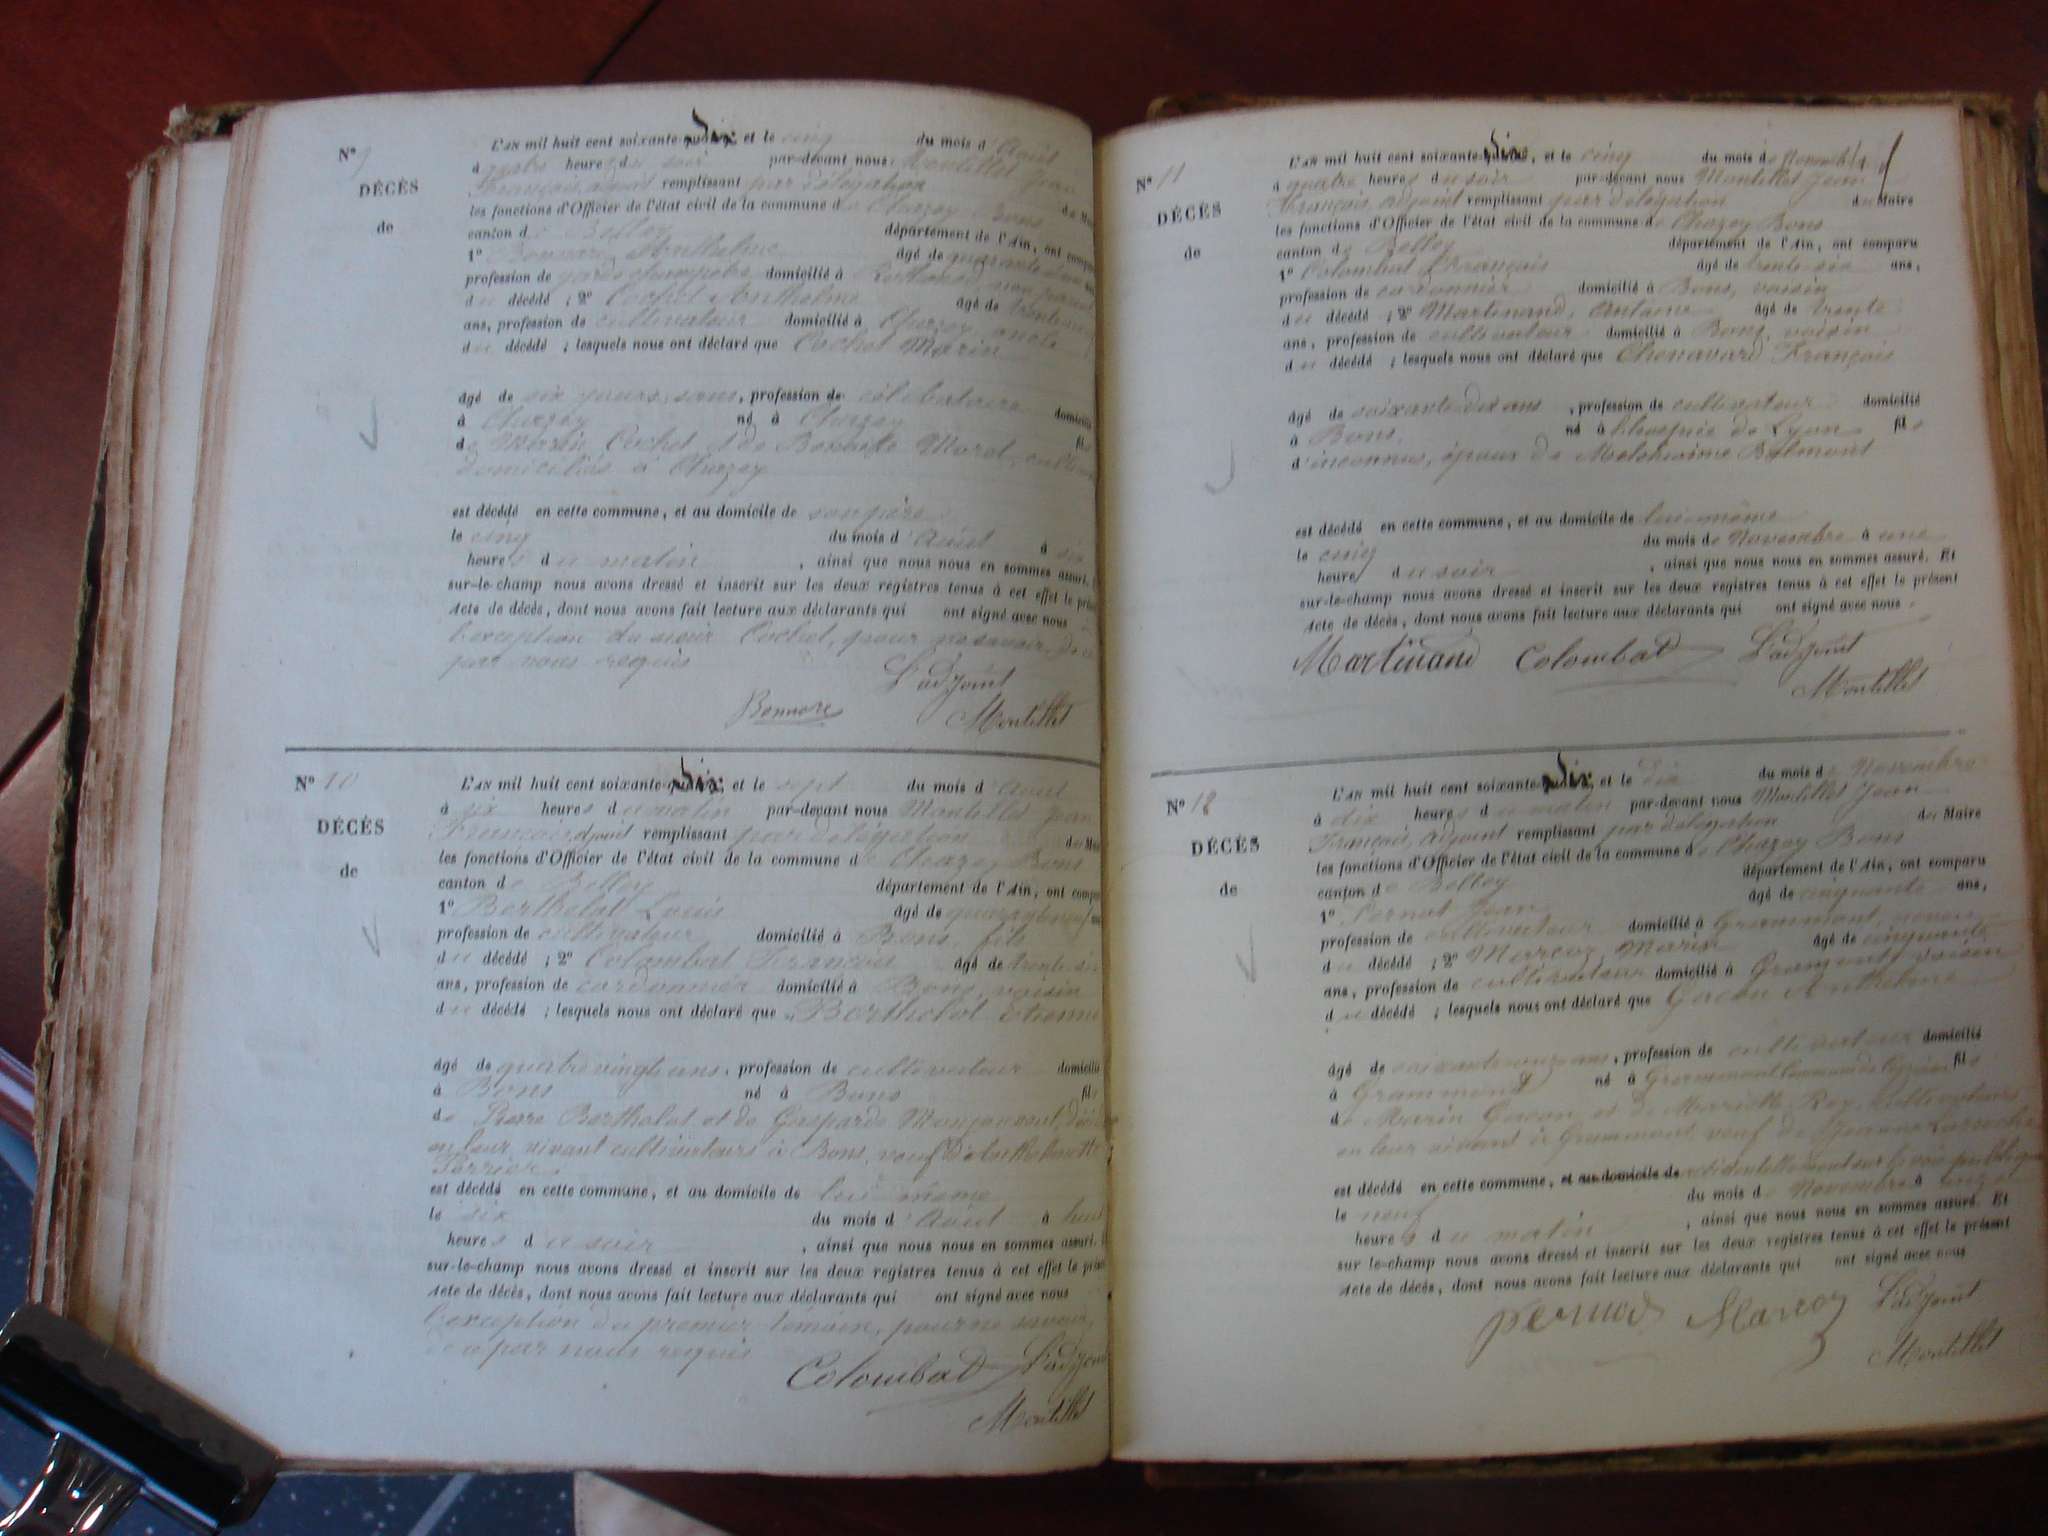 N° 9
DÉCÈS
de
L'AN mil huit cent soixante-dix et le cinq du mois d'Août
à quatre heures du soir par-devant nous Montillet Jean
François, adjoint remplissant par délégation du Maire
les fonctions d'Officier de l'état civil de la commune de Chazey Bons
canton de Belley département de l'Ain, ont comparu
1° Bonnard Anthelme âgé de quarante
profession de garde champêtre domicilié à non parent
du décédé ; 2° Cochet Anthelme âgé de trente
ans, profession de cultivateur domicilié à Chazey, oncle
du décédé ; lesquels nous ont déclaré que Cochet Marin
âgé de six jours, profession de célibataire domicilié
à Chazey né à Chazey fils
de Marin Cochet et de Morel,
domiciliés à Chazey
est décédé en cette commune, et au domicile de son père
le cinq du mois d'Août à six
heures du matin, ainsi que nous nous en sommes assuré.
sur-le-champ nous avons dressé et inscrit sur les deux registres tenus à cet effet le présent
Acte de décès, dont nous avons fait lecture aux déclarants qui ont signé avec nous
l'exception du sieur Cochet, pour ne savoir, de ce
par nous requis
L'adjoint
Bonnard Montillet
N° 10
DÉCÈS
de
L'AN mil huit cent soixante-dix, et le sept du mois d'Août
à six heures du matin par-devant nous Montillet Jean
François adjoint remplissant par délégation du Maire
les fonctions d'Officier de l'état civil de la commune de Chazey Bons
canton de Belley département de l'Ain, ont comparu
1° Berthelot Louis âgé de quarante
profession de cultivateur domicilié à Bons, fils
du décédé ; 2° Colombat François âgé de trente six
ans, profession de cordonnier domicilié à Bons, voisin
du décédé ; lesquels nous ont déclaré que Berthelot Etienne
âgé de quatre vingt ans, profession de cultivateur domicilié
à Bons né à Bons fils
de Pierre Berthelot et de Gasparde
en leur vivant cultivateurs à Bons, veuf de
Perrier.
est décédé en cette commune, et au domicile de lui même
le six du mois d'Août à huit
heures du soir, ainsi que nous nous en sommes assuré.
sur-le-champ nous avons dressé et inscrit sur les deux registres tenus à cet effet le présent
Acte de décès, dont nous avons fait lecture aux déclarants qui ont signé avec nous
l'exception du premier témoin, pour ne savoir,
de ce par nous requis
Colombat L'adjoint
Montillet
N° 11
DÉCÈS
de
L'AN mil huit cent soixante-dix, et le cinq du mois de Novembre
à quatre heures du soir par-devant nous Montillet Jean
François, adjoint remplissant par délégation du Maire
les fonctions d'Officier de l'état civil de la commune de Chazey Bons
canton de Belley département de l'Ain, ont comparu
1° Colombat François âgé de trente-six ans,
profession de cordonnier domicilié à Bons, voisin
du décédé ; 2° Martinand, Antoine âgé de trente
ans, profession de cultivateur domicilié à Bons, voisin
du décédé ; lesquels nous ont déclaré que Chenavard François
âgé de soixante dix ans, profession de cultivateur domicilié
à Bons, né à l'hospice de Lyon fils
d'inconnus, époux de Melchiorine Balmont
est décédé en cette commune, et au domicile de lui-même
le cinq du mois de Novembre à une
heure du soir, ainsi que nous nous en sommes assuré. Et
sur-le-champ nous avons dressé et inscrit sur les deux registres tenus à cet effet le présent
Acte de décès, dont nous avons fait lecture aux déclarants qui ont signé avec nous.
Martinand Colombat L'adjoint
Montillet
N° 12
DÉCÈS
de
L'AN mil huit cent soixante-dix, et le dix du mois de Novembre
à dix heures du matin par-devant nous Montillet Jean
François, adjoint remplissant par délégation du Maire
les fonctions d'Officier de l'état civil de la commune de Chazey Bons
canton de Belley département de l'Ain, ont comparu
1° Pernod Jean âgé de cinquante ans,
profession de cultivateur domicilié à Grammont, neveu
du décédé ; 2° Marcoz, Marin âgé de cinquante
ans, profession de cultivateur domicilié à Gramont, voisin
du décédé ; lesquels nous ont déclaré que Gacon Anthelme
âgé de soixante onze ans, profession de cultivateur domicilié
à Grammont né à Grammont Commune de Ceyzérieu fils
de Marin Gacon et de Mariette Rey, cultivateurs
en leur vivant à Grammont, veuf de Jeanne
est décédé en cette commune, et au domicile de accidentellement sur la voie publique
le neuf du mois de Novembre à onze
heures du matin, ainsi que nous nous en sommes assuré. Et
sur-le-champ nous avons dressé et inscrit sur les deux registres tenus à cet effet le présent
Acte de décès, dont nous avons fait lecture aux déclarants qui ont signé avec nous
Pernod Marcoz L'adjoint
Montillet